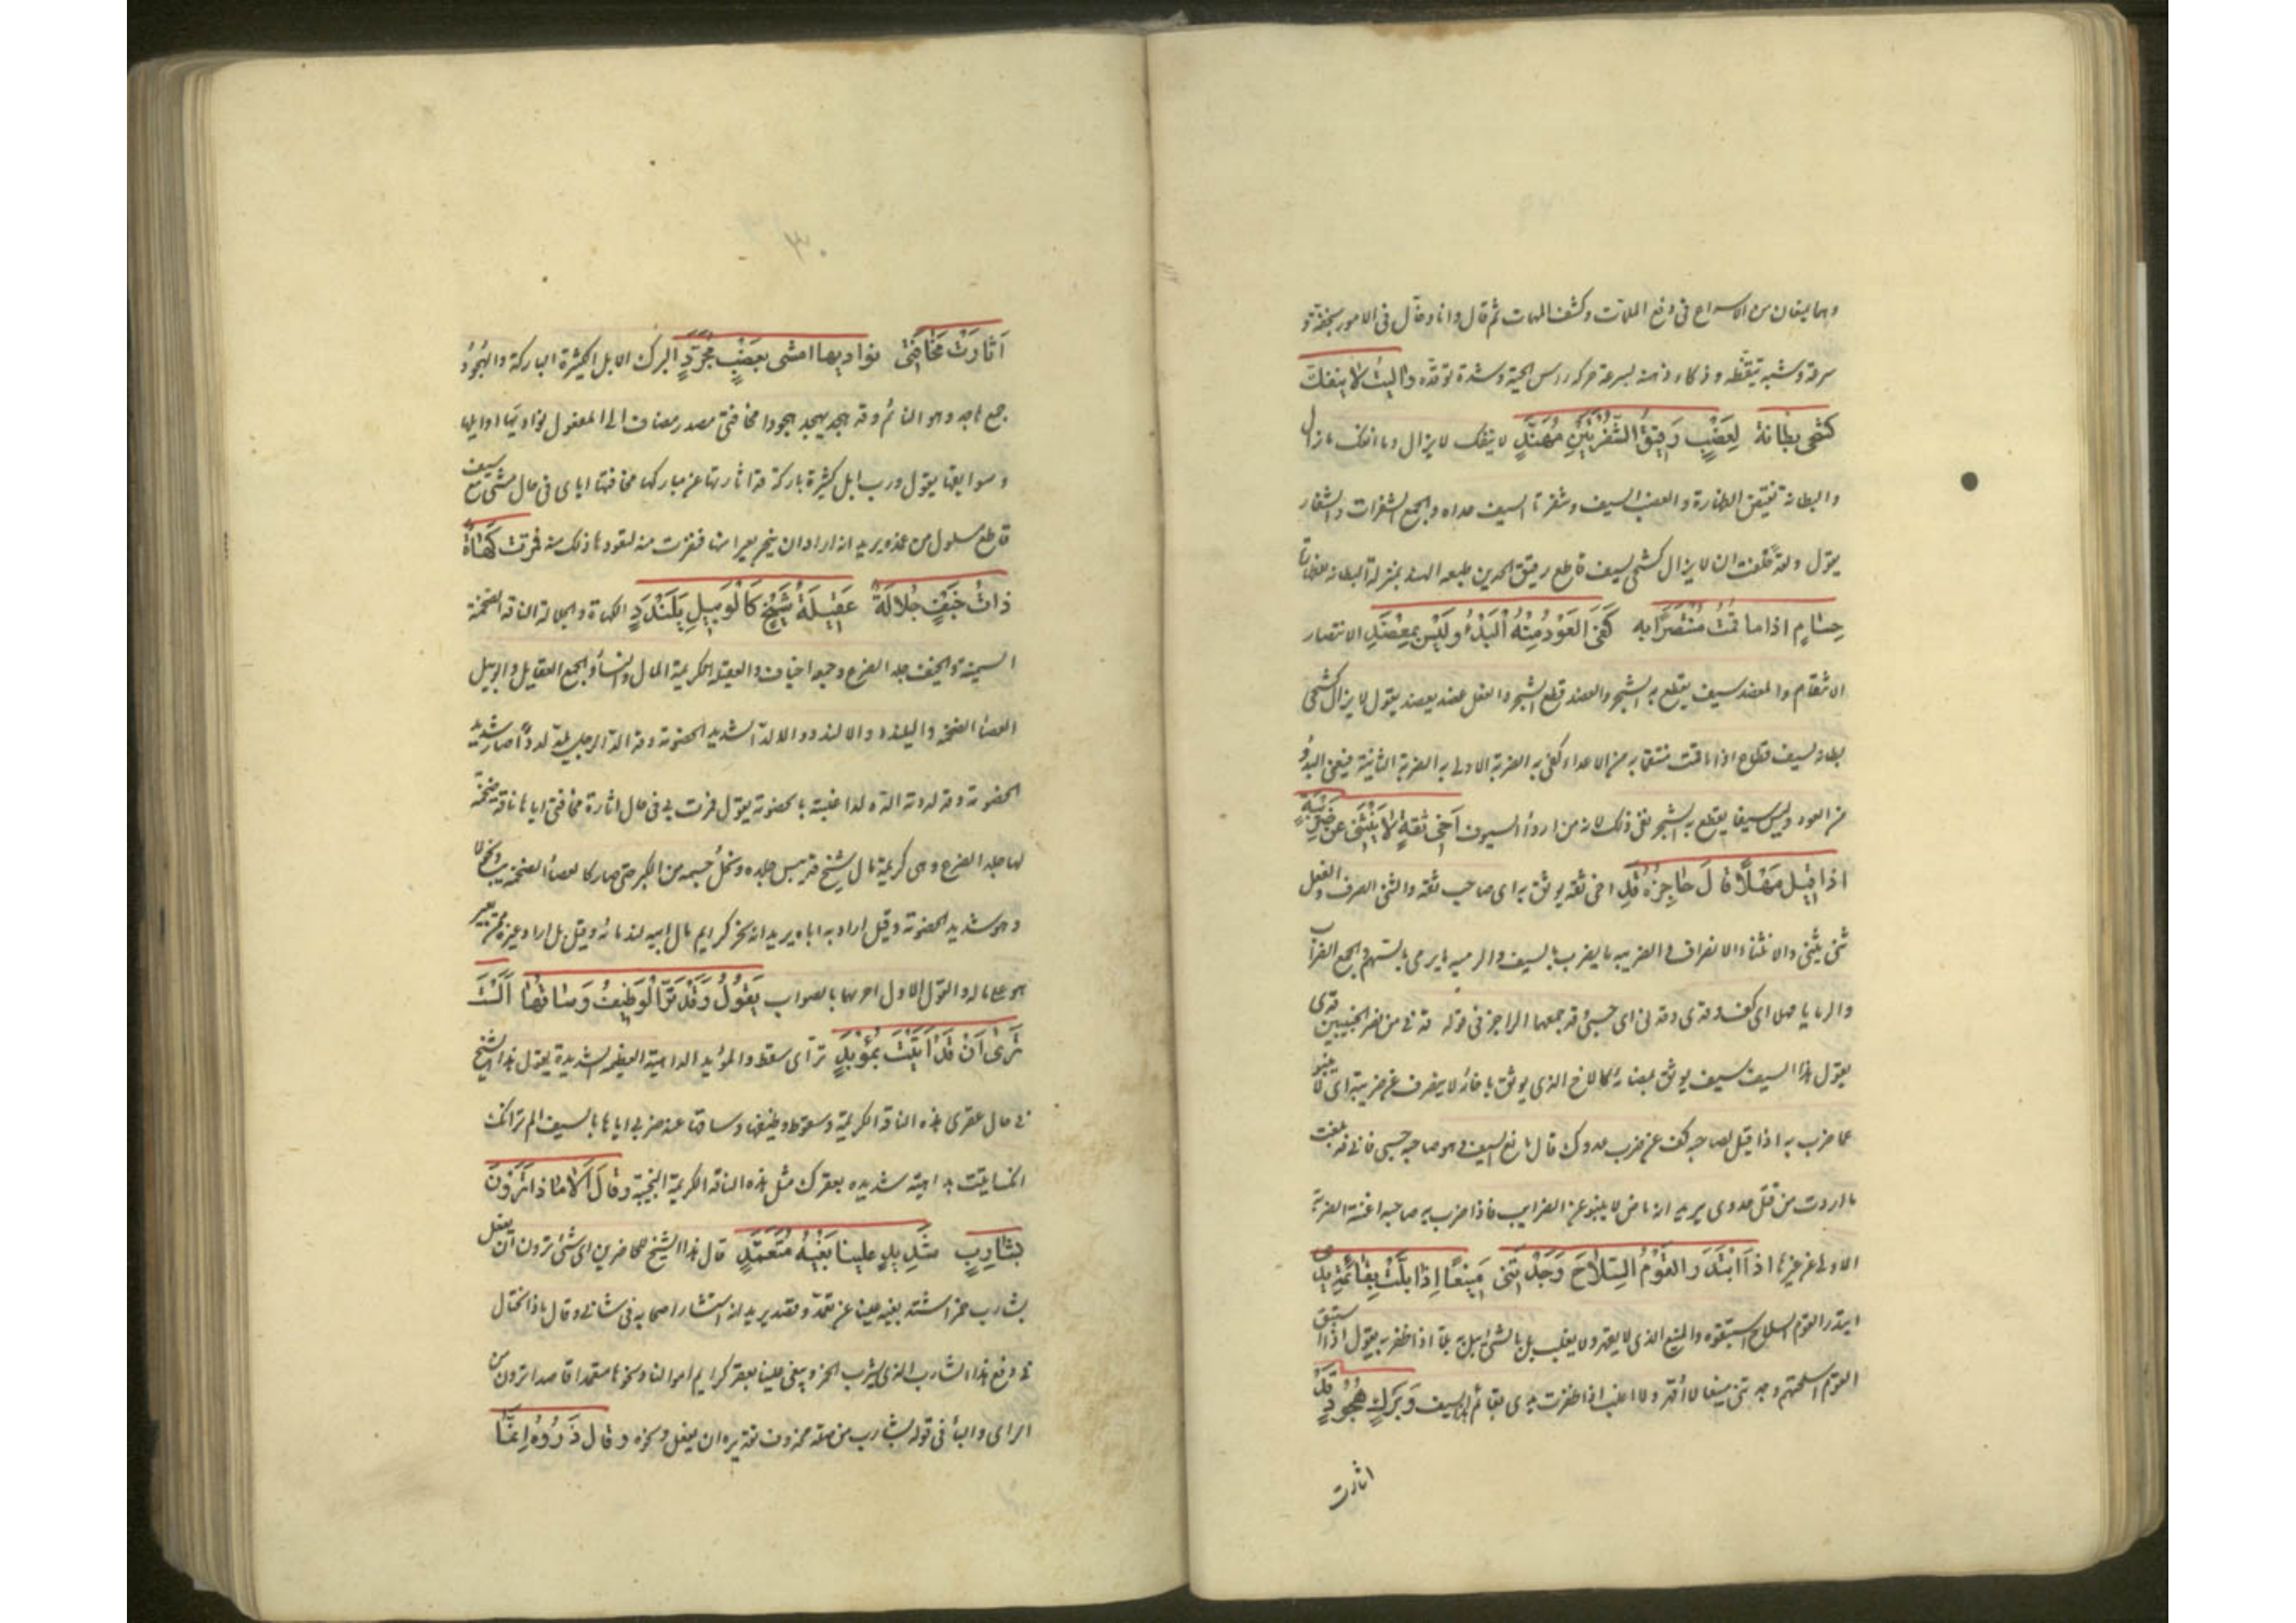 وهما يمنعان من الاسراع فى دفع الملمات وكشف المهمات ثم قال وانا دخال فى الامور بخفة و
سرعة وشبه تيقظه وذكاء ذهنه بسرعة حركة راس الحية وشدة توقده واليت لا ينفك
كشحى بطانة لعضب رقيق الشفرتين مهند لا ينفك لا يزال وما انفك ما زال
والبطانة نقيض الظهارة والعضب السيف وشفرتا السيف حداه والجمع الشفرات والشفار
يقول ولقد حلفت ان لا يزال كشحى لسيف قاطع رقيق الحدين طبعه الهند بمنزلة البطانة للظهارة
حسام اذا ما قمت منتصرا به كفى العود منه البدء وليس بمعضد الانتصار
الانتقام والمعضد سيف يقطع به الشجر والعضد قطع الشجر والفعل عضد يعضد يقول لا يزال كشحى
بطانة لسيف قطاع اذا ما قمت منتقما به من الاعداء كفى به الضربة الاولى به الضربة الثانية فيغنى البدؤ
عن العود وليس سيفا يقطع به الشجر نفى ذلك لانه من اردأ السيوف اخى ثقة لا ينثنى عن ضريبة
اذا قيل مهلا قال حاجزه قد اخى ثقة يوثق به اى صاحب ثقة والثنى الصرف والفعل
ثنى يثنى والانثناء الانصراف والضريبة ما يضرب بالسيف والرمية ما يرمى بالسهم والجمع الضرايب
والرمايا مهلا اى كف قدى وقدنى اى حسبى قد جمعهما الراجز فى قوله قدنى من نصر الخبيبين قدى
يقول هذا السيف سيف يوثق بمضائه كالاخ الذى يوثق باخائه لا ينصرف عن ضريبة اى لا ينبو
عما ضرب به اذا قيل لصاحبه كف عن ضرب عدوك قال مانع السيف وهو صاحبه حسبى فانى قد بلغت
ما اردت من قتل عدوى يريد انه ماض لا ينبو عن الضرايب فاذا ضرب به صاحبه اغنته الضربة
الاولى عن غيرها اذا ابتدر القوم السلاح وجدتنى منيعا اذا بلت بقائمه يدى
ابتدر القوم السلاح استبقوه والمنيع الذى لا يقهر ولا يغلب بل بالشئ يبل به بلا اذا ظفر به يقول اذا استبق
القوم اسلحتهم وجدتنى منيعا لا اقهر ولا اغلب اذا ظفرت يدى بقائم هذا السيف وبرك هجود قد
اثارت
٣٠
اثارت مخافتى نواديها امشى بعضب مجرد البرك الابل الكثيرة الباركة والهجود
جمع هاجد وهو النائم وقد هجد يهجد هجودا مخافتى مصدر مضاف الى المفعول نواديها اوايلها
وسوابقها يقول ورب ابل كثيرة باركة قد اثارتها عن مباركها مخافتها اياى فى حال مشى مع سيف
قاطع مسلول من غمده يريد انه اراد ان ينحر بعيرا منها فنفرت منه لتعودها ذلك منه فمرت كهاة
ذات خيف جلالة عقيلة شيخ كالوبيل يلندد الكهاة والجلالة الناقة الضخمة
السمينة والخيف جلد الضرع وجمعه اخياف والعقيلة الكريمة المال والنساء والجمع العقايل والوبيل
العصا الضخمة واليلندد والالندد والالد الشديد الخصومة وقد لد الرجل يلد لددا صار شديد
الخصومة وقد لددته الده لدا غلبته بالخصومة يقول فمرت بى فى حال اثارة مخافتى اياها ناقة ضخمة
لها جلد الضرع وهى كريمة مال شيخ قد يبس جلده ونحل جسمه من الكبر حتى صار كالعصا الضخمة يبسا ونحولا
وهو شديد الخصومة وقيل اراد به اباه يريد انه نحر كرايم مال ابيه لندمائه وقيل بل اراد غيره ممن يغير
هو على ماله والقول الاول احراهما بالصواب يقول وقد تر الوظيف وساقها الست
ترى ان قد اتيت بمؤيد تر اى سقط والمؤيد الداهية العظيمة الشديدة يقول هذا الشيخ
فى حال عقرى هذه الناقة الكريمة وسقوط وظيفها وساقها عند ضربى اياها بالسيف الم تر انك
اتيت بداهية شديدة بعقرك مثل هذه الناقة الكريمة النجيبة وقال الا ماذا ترون
بشارب شديد علينا بغيه متعمد قال هذا الشيخ للحاضرين اى شئ ترون ان نفعل
بشارب خمر اشتد بغيه علينا عن تعمد وقصد يريد انه استشار اصحابه فى شانى وقال ماذا نحتال
فى دفع هذا الشارب الذى يشرب الخمر ويبغى علينا بعقر كرايم اموالنا ونحرها متعمدا قاصدا ترون من
الراى والباء فى قوله بشارب من صلة محذوف تقديره ان يفعل ونحوه وقال ذروه انما